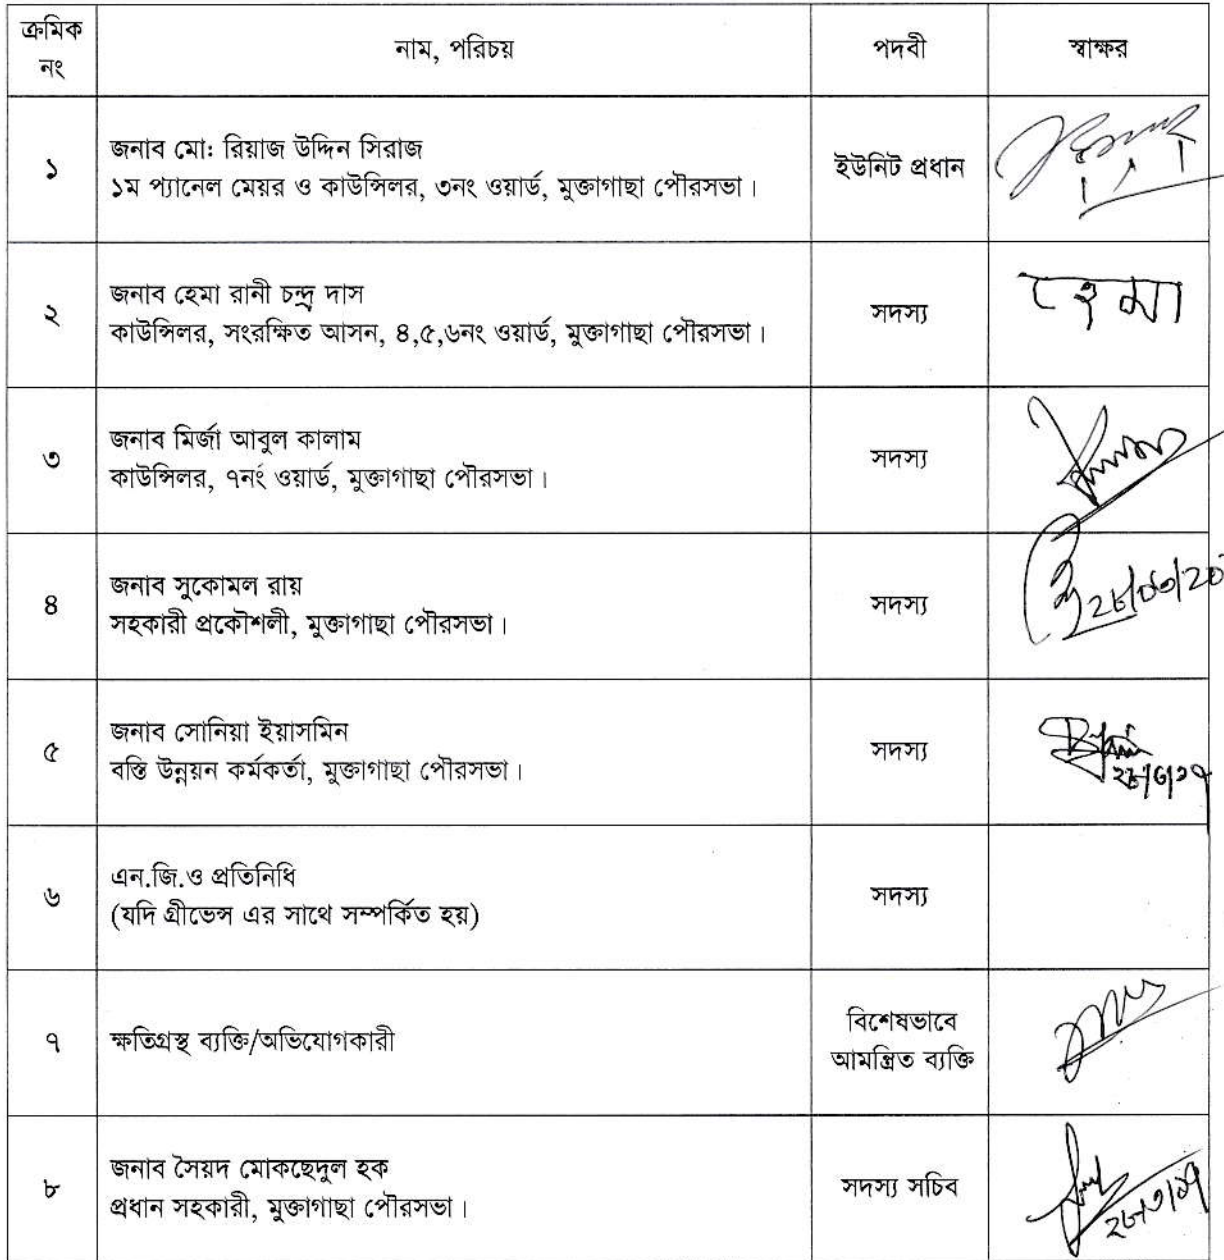 ক্রমিক
নং
নাম, পরিচয়
পদবী
স্বাক্ষর
১
জনাব মো: রিয়াজ উদ্দিন সিরাজ
১ম প্যানেল মেয়র ও কাউন্সিলর, ৩নং ওয়ার্ড, মুক্তাগাছা পৌরসভা।
ইউনিট প্রধান
২
জনাব হেমা রানী চন্দ্র দাস
কাউন্সিলর, সংরক্ষিত আসন, ৪,৫,৬নং ওয়ার্ড, মুক্তাগাছা পৌরসভা।
সদস্য
হেমা
৩
জনাব মির্জা আবুল কালাম
কাউন্সিলর, ৭নং ওয়ার্ড, মুক্তাগাছা পৌরসভা।
সদস্য
৪
জনাব সুকোমল রায়
সহকারী প্রকৌশলী, মুক্তাগাছা পৌরসভা।
সদস্য
৫
জনাব সোনিয়া ইয়াসমিন
বস্তি উন্নয়ন কর্মকর্তা, মুক্তাগাছা পৌরসভা।
সদস্য
৬
এন.জি.ও প্রতিনিধি
(যদি গ্রীভেন্স এর সাথে সম্পর্কিত হয়)
সদস্য
৭
ক্ষতিগ্রস্থ ব্যক্তি/অভিযোগকারী
বিশেষভাবে
আমন্ত্রিত ব্যক্তি
৮
জনাব সৈয়দ মোকছেদুল হক
প্রধান সহকারী, মুক্তাগাছা পৌরসভা।
সদস্য সচিব